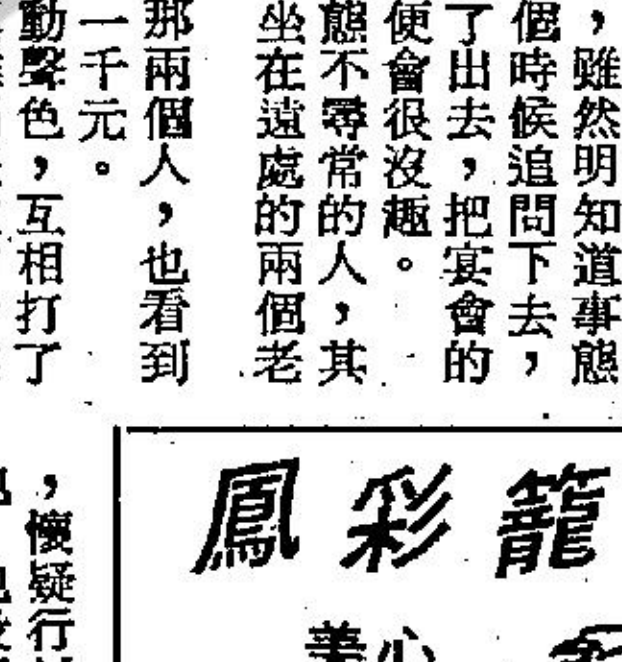 ，雖然明知道事態
個時候追問下去，
了出去，把宴會的
便會很沒趣。
態不尋常的人，其
坐在遠處的兩個老
那兩個人，也看到
一千元。
動聲色，互相打了
籠彩鳳
心
善
，懷疑行